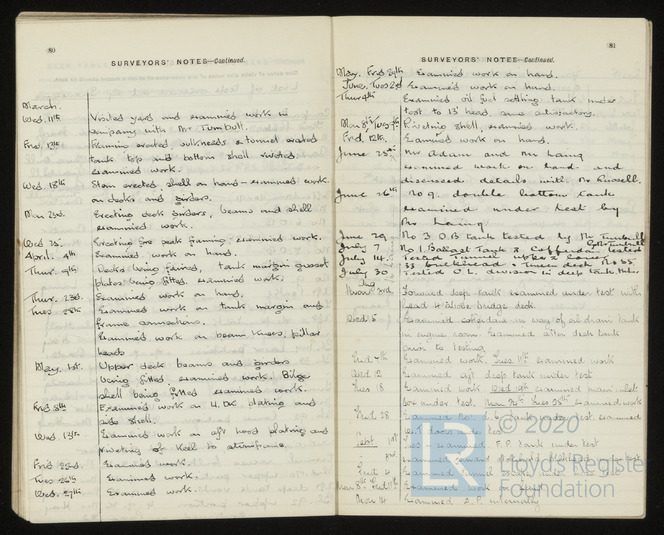 80
SURVEYORS' NOTES—Continued.
March.
Wed. 11th Visited yard and examined work in
company with Mr Turnbull.
Frid. 13th Framing erected, bulkheads & tunnel erected
tank top and bottom shell riveted.
examined work.
Wed. 18th Stem erected, shell on hand - examined work
on decks and girders.
Mon 23rd. Erecting deck girders, beams and shell
examined work.
Wed 25. Erecting fore deck framing, examined work.
April. 4th Examined work on hand.
Thur. 9th Decks being faired, tank margin gusset
plates being fitted, examined work.
Thur. 23rd. Examined work on hand.
Tues 28th Examined work on tank margin and
frame connections.
Examined work on beam knees, pillar
heads
May. 1st. Upper deck beams and girders
being fitted, examined work. Bilge
shell being fitted examined work.
Frid. 8th Examined work on U. DK plating and
side shell.
Wed. 13th. Examined work on aft hood plating and
riveting of keel to sternframe.
Frid 22nd. Examined work.
Tues 26th Examined work.
Wed. 27th Examined work.
81
SURVEYORS' NOTES—Continued.
May. Frid 29th Examined work on hand.
June. Tues 2nd Examined work on hand.
Thur 4th Examined oil fuel settling tank under
test to 13' head, same satisfactory.
Mon 8th Tues 9th Riveting shell, examined work.
Frid. 12th. Examined work on hand.
June 25th. Mr Adam and Mr Laing
examined work on hand and
discussed details with Mr
June 26th No 9. double bottom tank
examined under test by
Mr Laing
June 29 No 3 O.B tank tested by Mr Turnbull
July 7 No 1 Ballast Tank & Cofferdam tested
July 14. Tested Tunnel upper & lower
July 30 Tested C.L. division in deep tank
Aug
3rd Forward deep tank examined under test with
head to above bridge deck
Wed 5 Examined cofferdam in way of oil drain tank
in engine room. Examined after deep tank
prior to testing
Examined work. Tues 11th examined work
Wed 12 Examined aft deep tank under test
Tues 18 Examined work Wed 19th examined main inlet
box under test. Mon 24th Tues 25th examined work
Frid. 28 Examined No tank under test examined
Sept. 1st examined F.P. tank under test
Frid 4 Examined
Examined work on hand
Mon 14 Examined internally
© 2020
Lloyd's Register
Foundation
LR